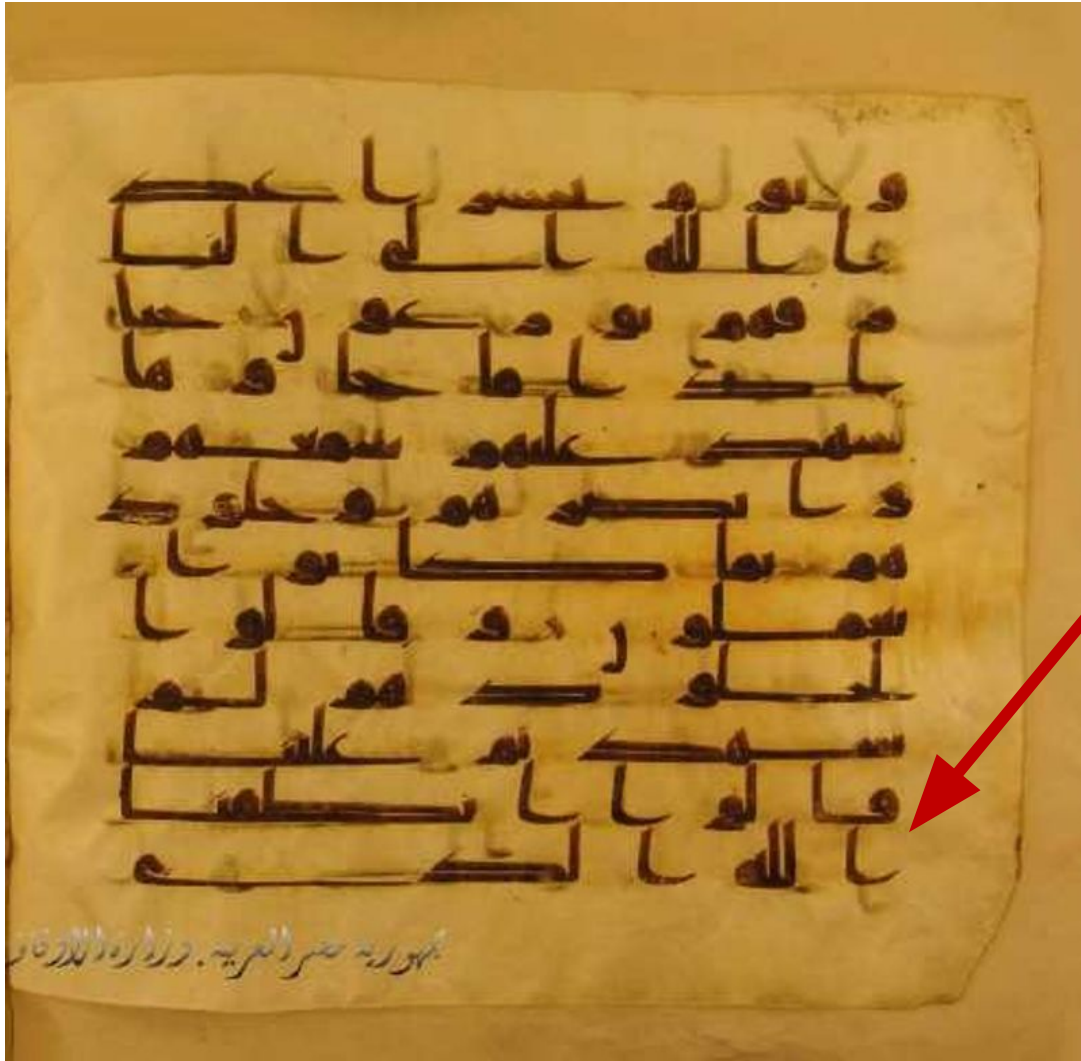 و يوم يحشر اعد
ا الله الى النا
ر فهم يوزعون حتى
اذا ما جاوها
شهد عليهم سمعهم
و ابصرهم و جلود
هم بما كانوا يـ
عملون و قالوا
لجلودهم لم
شهدتم علينا
قالوا انطقنا
الله الذي
جمهورية مصر العربية . وزارة الاوقاف